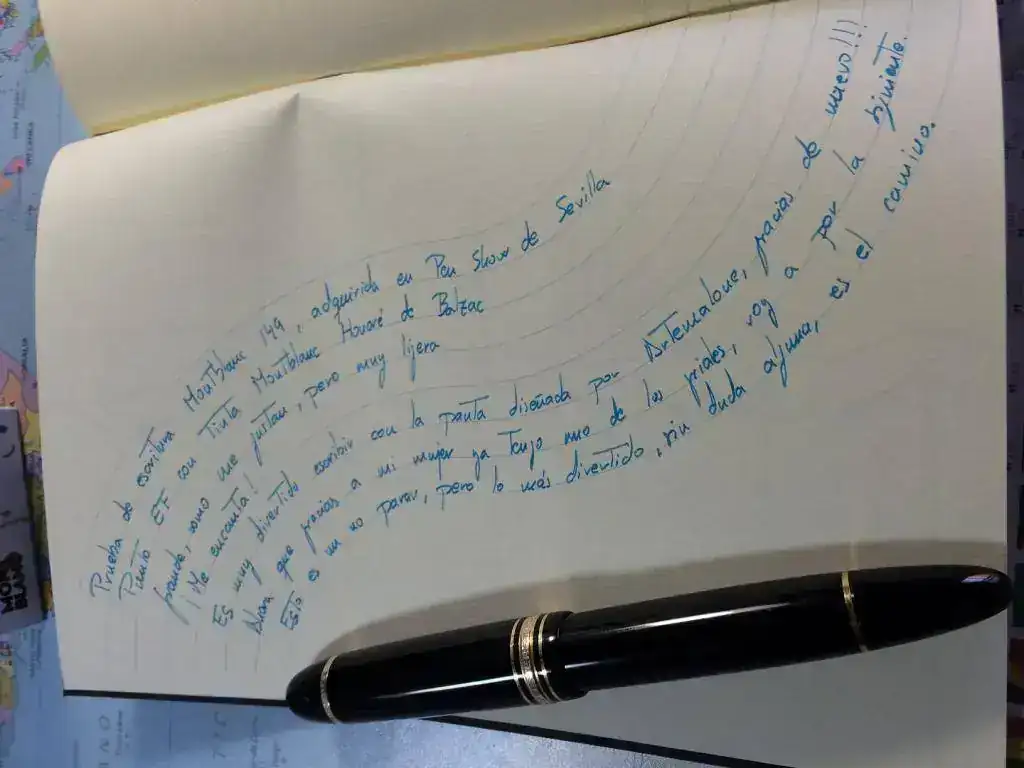 Prueba de escritura Montblanc 149, adquirida en Pen Show de Sevilla
Punto EF con Tinta Montblanc Honoré de Balzac
grande, como me gustan, pero muy lijera
¡Me encanta!
Es muy divertido escribir con la pauta diseñada por Artemalone, gracias de nuevo!!!
Ahora que gracias a mi mujer ya tengo uno de los griales, voy a por la siguiente.
Esto es un no parar, pero lo más divertido, sin duda alguna, es el camino.
MONT
BLANC